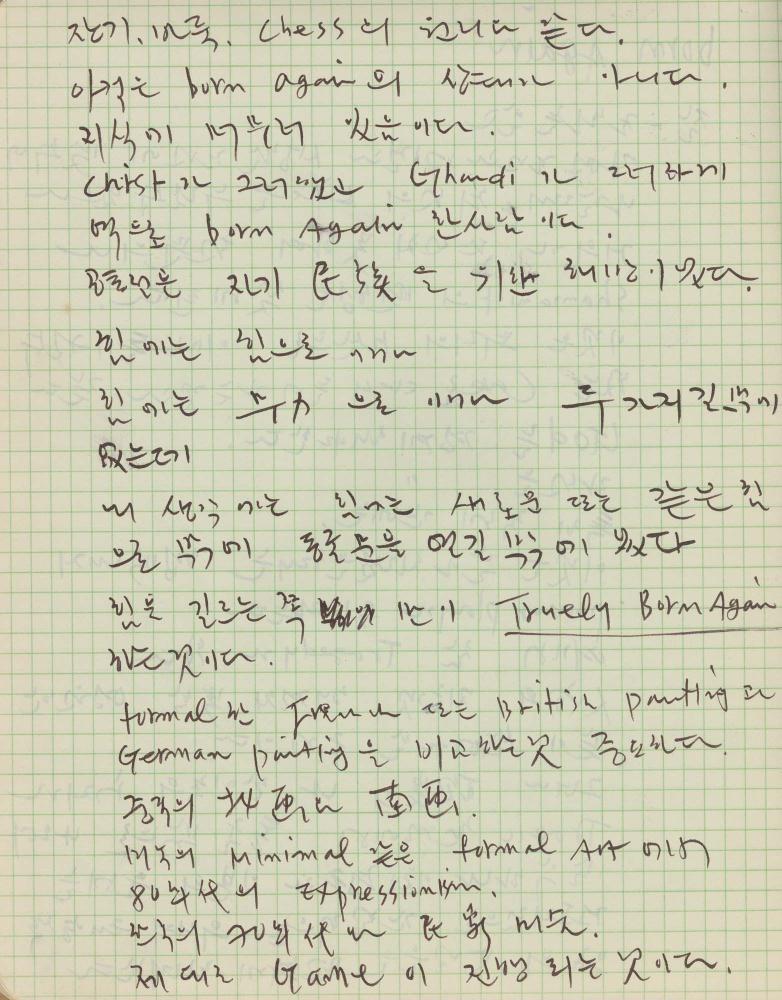 장기, 바둑, Chess의 원리와 같다.
이것은 born again의 상태가 아니다.
지식에 머무러 있음이다.
Christ가 그러했고 Ghandi가 그러하게
역으로 born Again 한 사람이다.
공통점은 자기 民族을 위한
힘에는 힘으로
힘에는 무力으로 두가지 길 밖에
없는데
내 생각에는 힘에는 새로운 또는 같은 힘
으로 밖에 동굴 문을 열 길 밖에 없다
힘을 길르는 쪽 만이 Truely Born Again
하는 것이다.
formal한 French 또는 British painting과
German painting을 비교하는 것 중요하다.
중국의 北画와 南画.
미국의 Minimal 같은 formal Art에서
80年代의 Expressionism.
한국의 70年代와 民衆 미술.
제대로 Game이 진행되는 것이다.